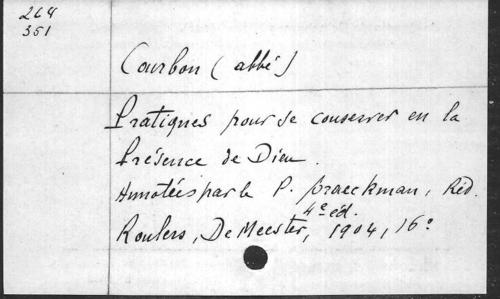 264
351
Courbon (abbé)
Pratiques pour se conserver en la
Présence de Dieu.
Annotées par le P. Braeckman, Réd.
4e éd.
Roulers, De Meester, 1904, 16°